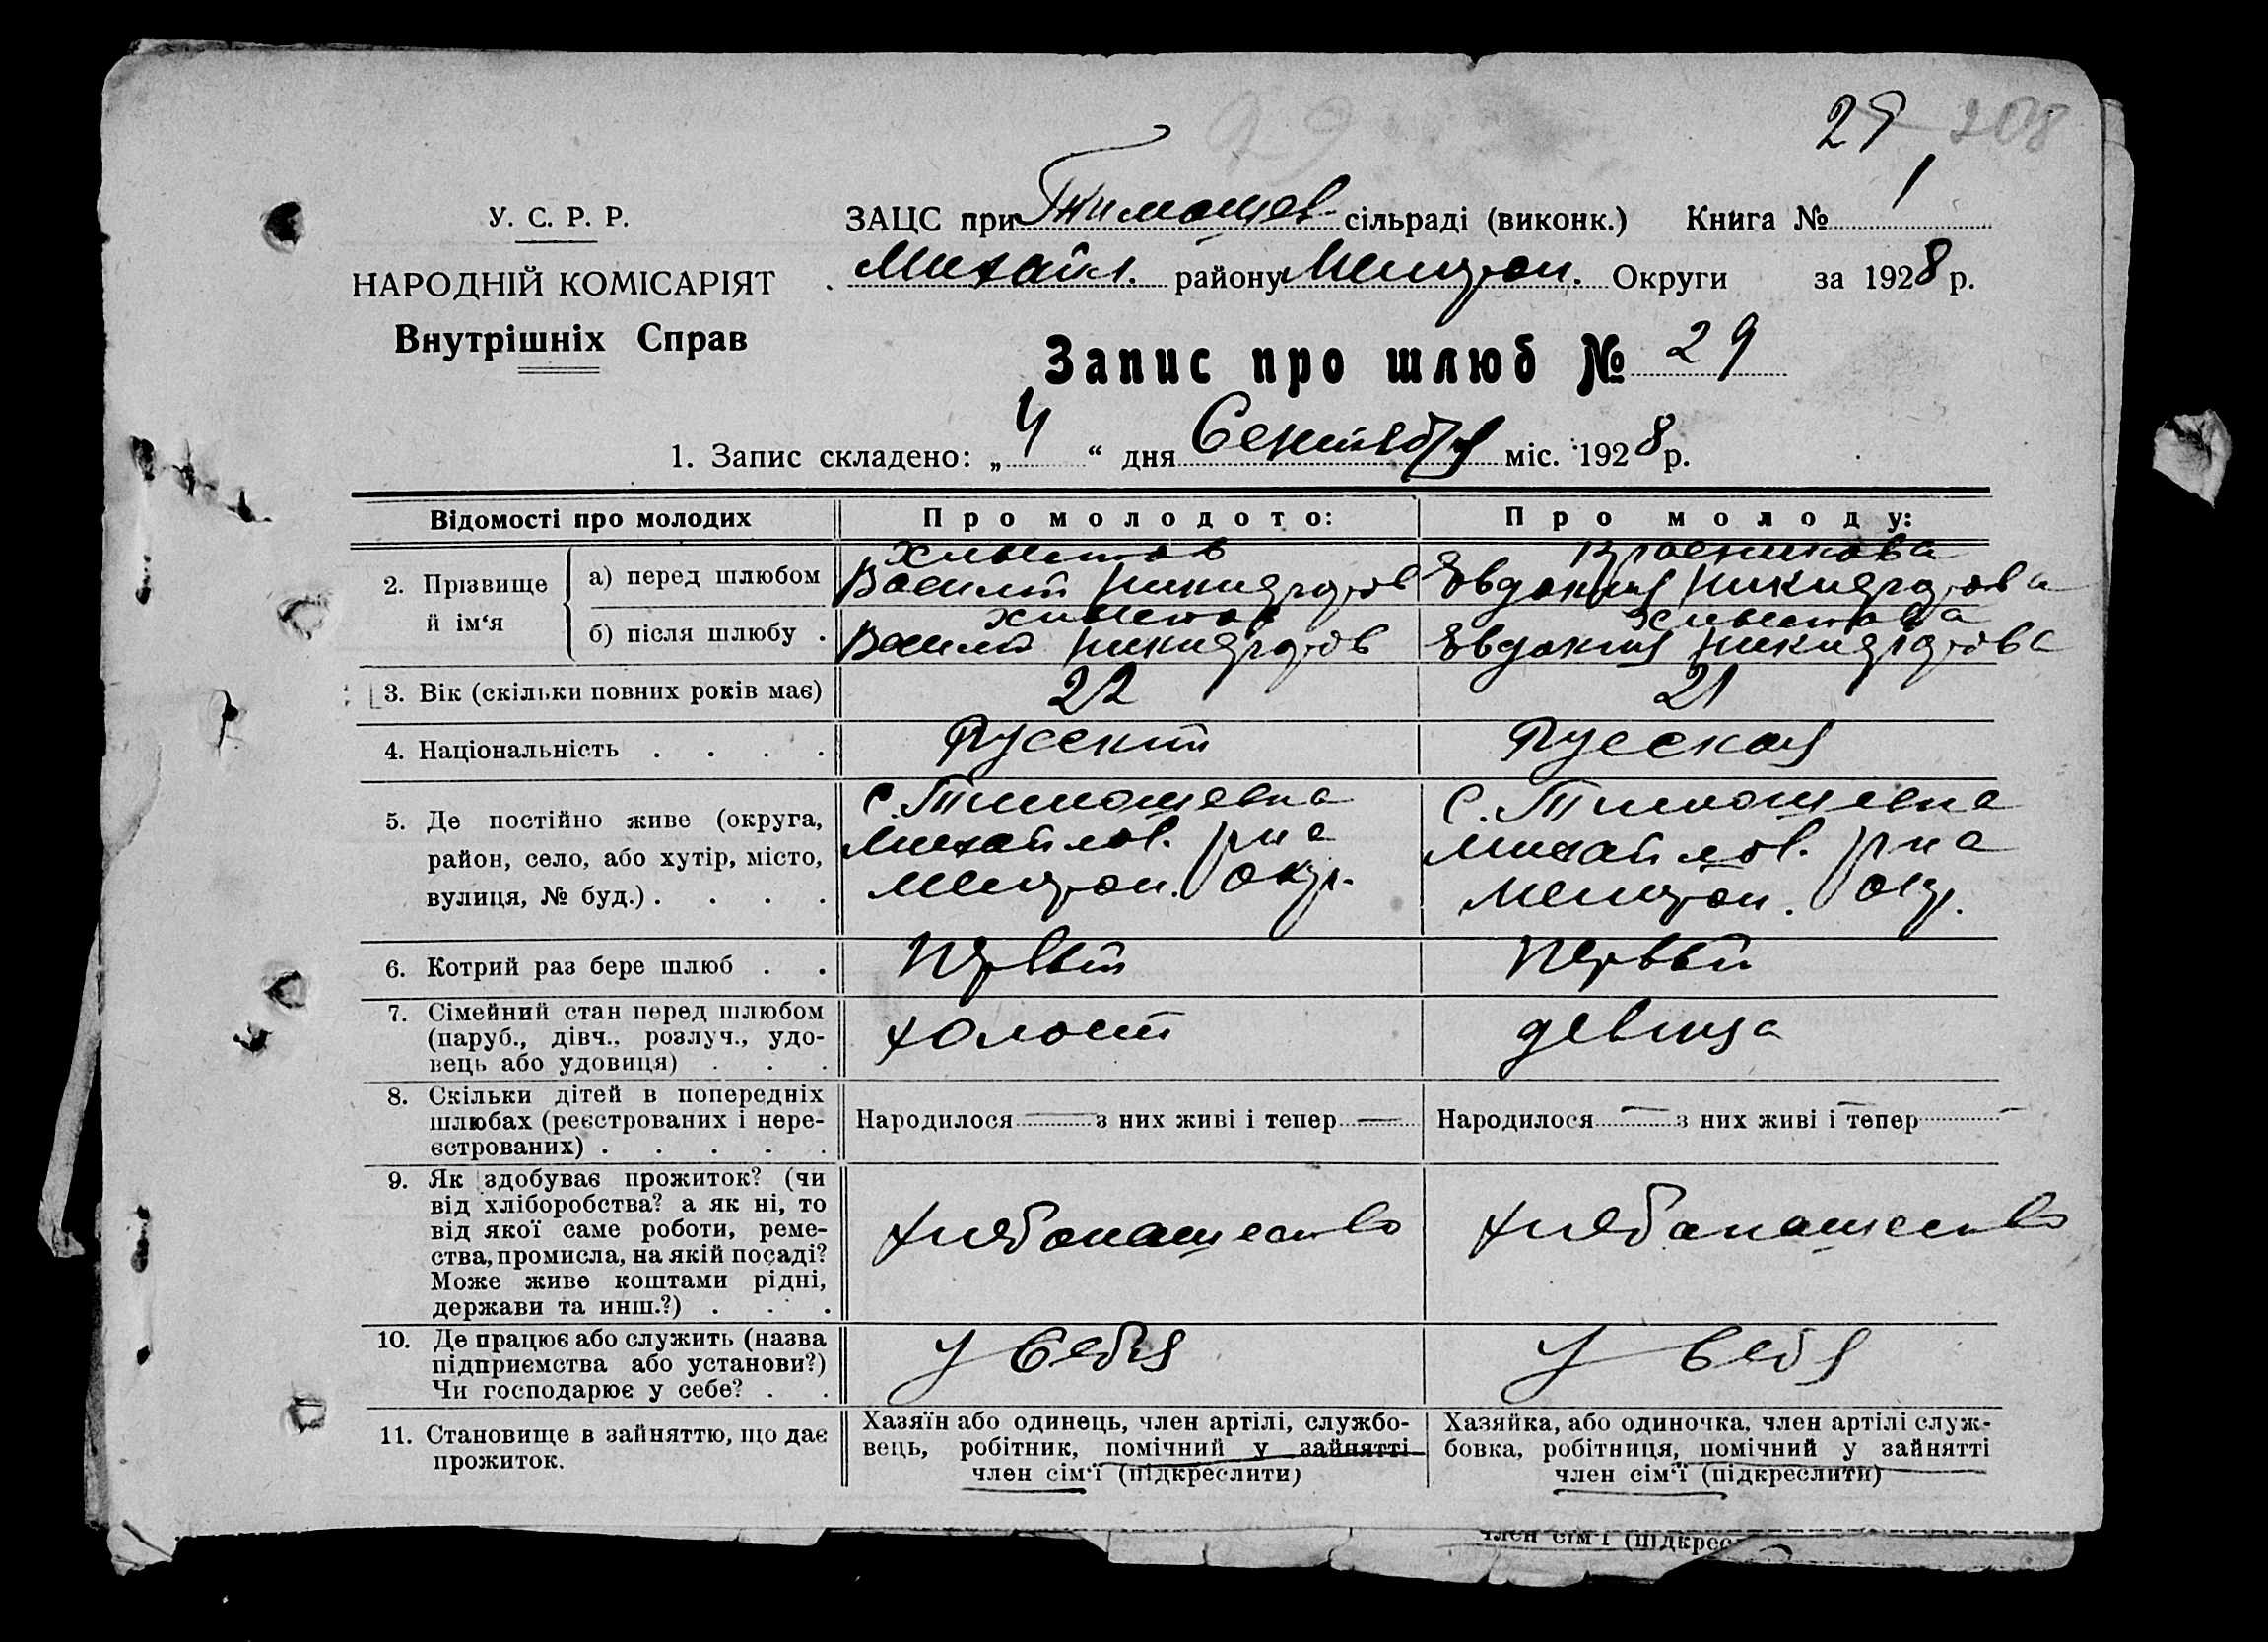 29 208
У. С. Р. Р.
НАРОДНІЙ КОМІСАРІЯТ
Внутрішніх Справ
ЗАЦС при Тимошев- сільраді (виконк.) Книга № 1
Михайл. району Мелитоп. Округи за 1928 р.
Запис про шлюб № 29
1. Запис складено: „ 4 “ дня Сентября міс. 1928 р.
Відомості про молодих Про молодого: Про молоду:
2. Прізвище й ім‘я
а) перед шлюбом Хлыстов Василий Никифоров Евдокия Никифорова
б) після шлюбу . Хлыстов Василий Никифоров Хлыстова Евдокия Никифорова
3. Вік (скільки повних років має) 22 21
4. Національність . . . . Русский Русская
5. Де постійно живе (округа,
район, село, або хутір, місто,
вулиця, № буд.) . . . .
С. Тимошевка
Михайлов. р-на
Мелитоп. окр.
С. Тимошевка
Михайлов. р-на
Мелитоп. окр.
6. Котрий раз бере шлюб . . Первый Первый
7. Сімейний стан перед шлюбом
(паруб., дівч., розлуч., удо-
вець або удовиця) . . .
холост девица
8. Скільки дітей в попередніх
шлюбах (реєстрованих і нере-
єстрованих) . . . . .
Народилося — з них живі і тепер — Народилося — з них живі і тепер —
9. Як здобуває прожиток? (чи
від хліборобства? а як ні, то
від якої саме роботи, реме-
ства, промисла, на якій посаді?
Може живе коштами рідні,
держави та инш.?) . . .
хлебопашество хлебопашество
10. Де працює або служить (назва
підприємства або установи?)
Чи господарює у себе? . .
у себя у себя
11. Становище в зайняттю, що дає
прожиток.
Хазяїн або одинець, член артілі, службо-
вець, робітник, помічний у зайнятті
член сім‘ї (підкреслити)
Хазяйка, або одиночка, член артілі служ-
бовка, робітниця, помічний у зайнятті
член сім‘ї (підкреслити)
член сім‘ї (підкрес